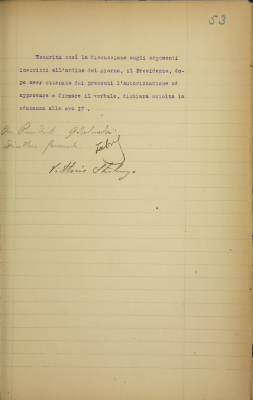 53
Esaurita così la discussione sugli argomenti
inscritti all'ordine del giorno, il Presidente, do-
po aver ottenuto dei presenti l'autorizzazione ad
approvare e firmare il verbale, dichiara sciolta la
adunanza alle ore 17.
Presidente
Direttore
Vittorio